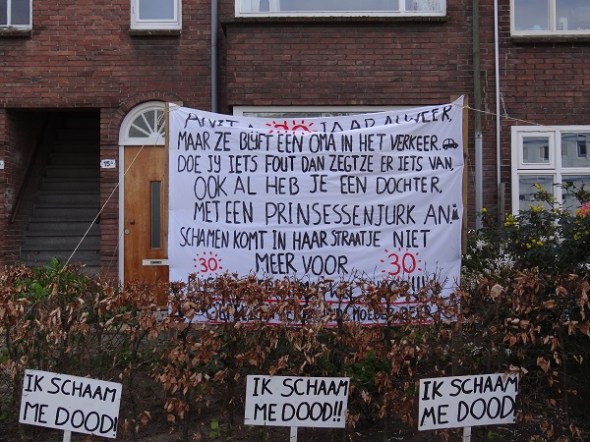 30 JAAR ALWEER,
MAAR ZE BLIJFT EEN OMA IN HET VERKEER.
DOE JY IETS FOUT DAN ZEGT ZE ER IETS VAN
OOK AL HEB JE EEN DOCHTER,
MET EEN PRINSESSENJURK AN
SCHAMEN KOMT IN HAAR STRAATJE NIET
30 MEER VOOR 30
IK SCHAAM ME DOOD!
IK SCHAAM ME DOOD!!
IK SCHAAM ME DOOD!